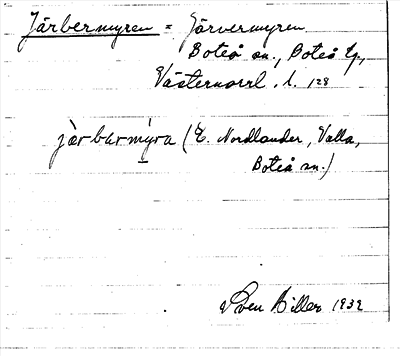 Järbermyren = Görvermyren
Boteå sn., Boteå tg,
Västernorrl. l. 128
jàrbarmy̠ra (E. Nordlander, Valla,
Boteå sn.)
Sven Hiller 1932